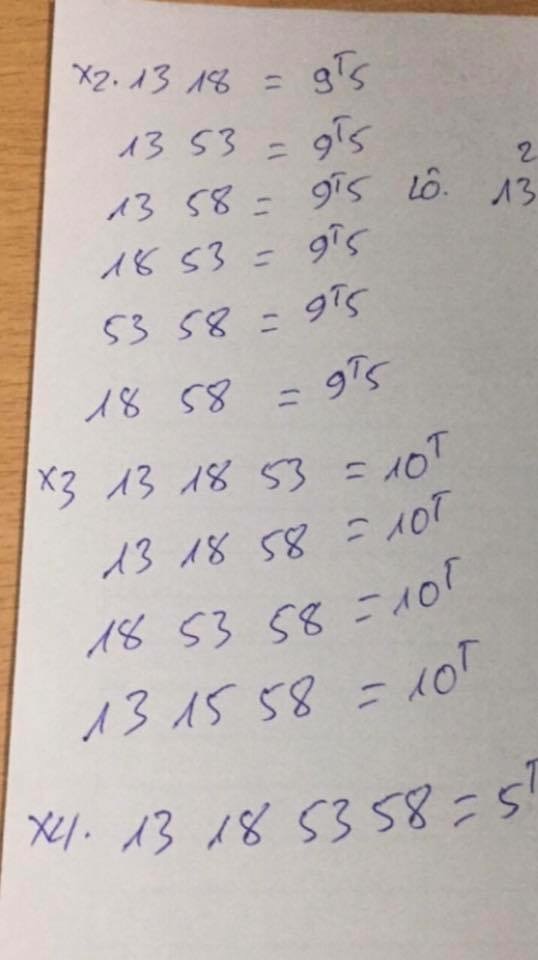 x2. 13 18 = 9T5
13 53 = 9T5
2
13 58 = 9T5 Lô. 13
18 53 = 9T5
53 58 = 9T5
18 58 = 9T5
x3 13 18 53 = 10T
13 18 58 = 10T
18 53 58 = 10T
13 15 58 = 10T
x4. 13 18 53 58 = 5T